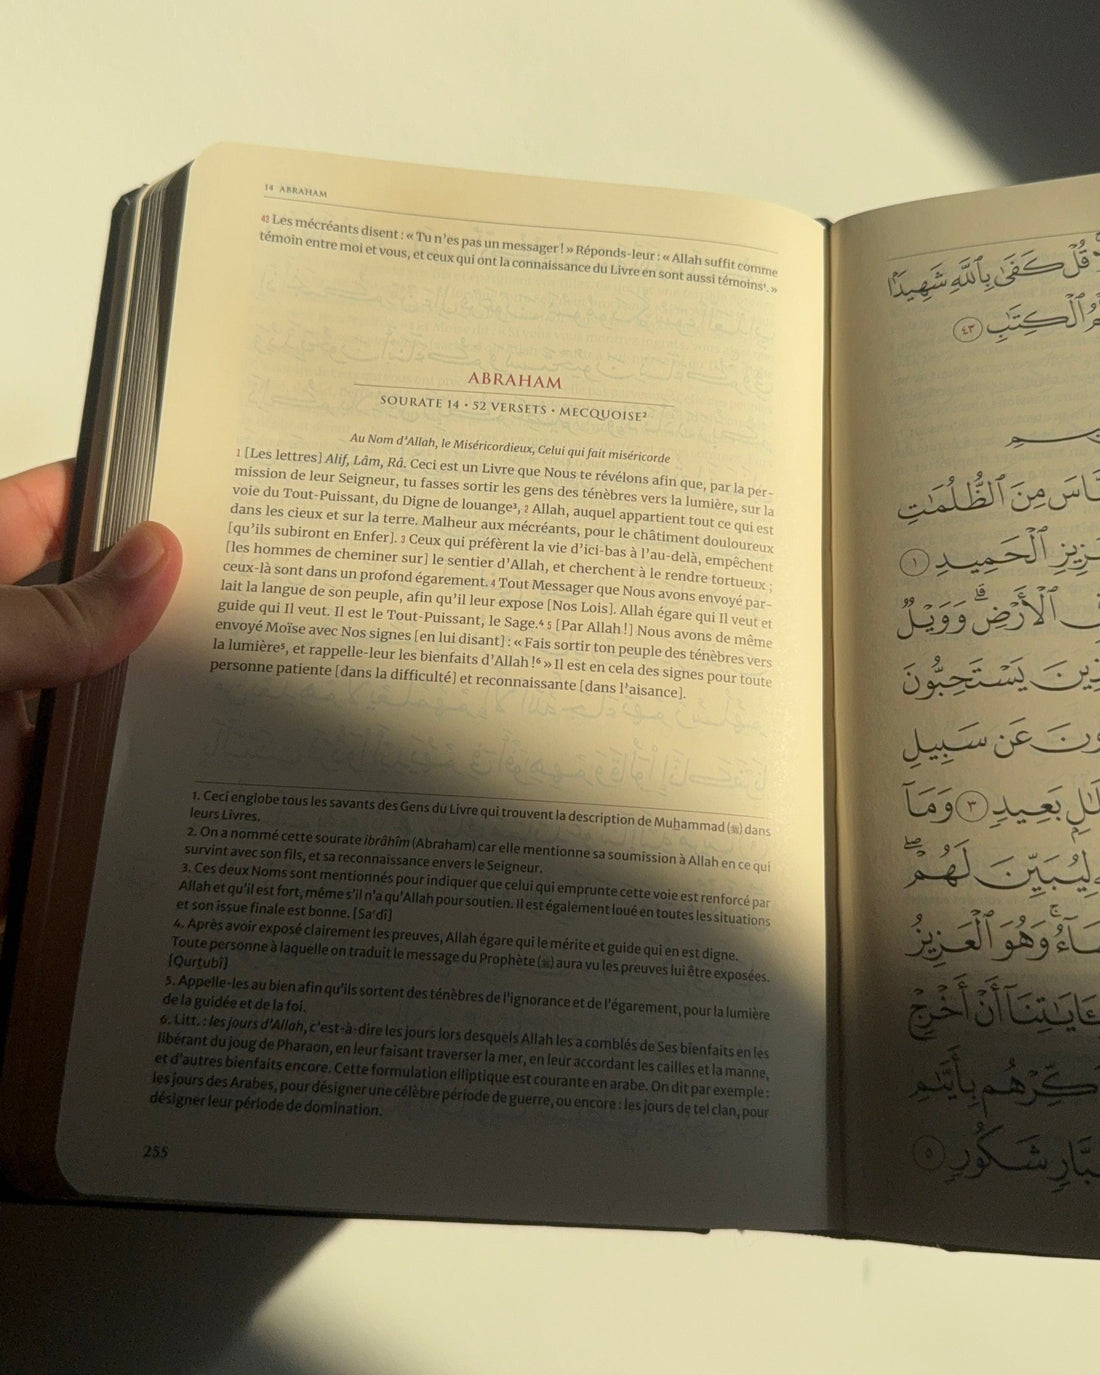 14 ABRAHAM
43 Les mécréants disent : « Tu n'es pas un messager ! » Réponds-leur : « Allah suffit comme
témoin entre moi et vous, et ceux qui ont la connaissance du Livre en sont aussi témoins¹. »
ABRAHAM
SOURATE 14 • 52 VERSETS • MECQUOISE²
Au Nom d'Allah, le Miséricordieux, Celui qui fait miséricorde
1 [Les lettres] Alif, Lâm, Râ. Ceci est un Livre que Nous te révélons afin que, par la per-
mission de leur Seigneur, tu fasses sortir les gens des ténèbres vers la lumière, sur la
voie du Tout-Puissant, du Digne de louange³, 2 Allah, auquel appartient tout ce qui est
dans les cieux et sur la terre. Malheur aux mécréants, pour le châtiment douloureux
[qu'ils subiront en Enfer]. 3 Ceux qui préfèrent la vie d'ici-bas à l'au-delà, empêchent
[les hommes de cheminer sur] le sentier d'Allah, et cherchent à le rendre tortueux ;
ceux-là sont dans un profond égarement. 4 Tout Messager que Nous avons envoyé par-
lait la langue de son peuple, afin qu'il leur expose [Nos Lois]. Allah égare qui Il veut et
guide qui Il veut. Il est le Tout-Puissant, le Sage.⁴ 5 [Par Allah !] Nous avons de même
envoyé Moïse avec Nos signes [en lui disant] : « Fais sortir ton peuple des ténèbres vers
la lumière⁵, et rappelle-leur les bienfaits d'Allah !⁶ » Il est en cela des signes pour toute
personne patiente [dans la difficulté] et reconnaissante [dans l'aisance].
1. Ceci englobe tous les savants des Gens du Livre qui trouvent la description de Muḥammad (ﷺ) dans
leurs Livres.
2. On a nommé cette sourate ibrâhîm (Abraham) car elle mentionne sa soumission à Allah en ce qui
survint avec son fils, et sa reconnaissance envers le Seigneur.
3. Ces deux Noms sont mentionnés pour indiquer que celui qui emprunte cette voie est renforcé par
Allah et qu'il est fort, même s'il n'a qu'Allah pour soutien. Il est également loué en toutes les situations
et son issue finale est bonne. [Sa'dî]
4. Après avoir exposé clairement les preuves, Allah égare qui le mérite et guide qui en est digne.
Toute personne à laquelle on traduit le message du Prophète (ﷺ) aura vu les preuves lui être exposées.
[Qurṭubî]
5. Appelle-les au bien afin qu'ils sortent des ténèbres de l'ignorance et de l'égarement, pour la lumière
de la guidée et de la foi.
6. Litt. : les jours d'Allah, c'est-à-dire les jours lors desquels Allah les a comblés de Ses bienfaits en les
libérant du joug de Pharaon, en leur faisant traverser la mer, en leur accordant les cailles et la manne,
et d'autres bienfaits encore. Cette formulation elliptique est courante en arabe. On dit par exemple :
les jours des Arabes, pour désigner une célèbre période de guerre, ou encore : les jours de tel clan, pour
désigner leur période de domination.
255
قُلْ كَفَىٰ بِٱللَّهِ شَهِيدًۢا
ٱلْكِتَٰبِ ٤٣
مِنَ ٱلظُّلُمَٰتِ
ٱلْحَمِيدِ ١
ٱلْأَرْضِ ۗ وَوَيْلٌ
يَسْتَحِبُّونَ
عَن سَبِيلِ
بَعِيدٍ ٣ وَمَآ
لِيُبَيِّنَ لَهُمْ ۖ
وَهُوَ ٱلْعَزِيزُ
أَنْ أَخْرِجْ
بِأَيَّىٰمِ
شَكُورٍ ٥